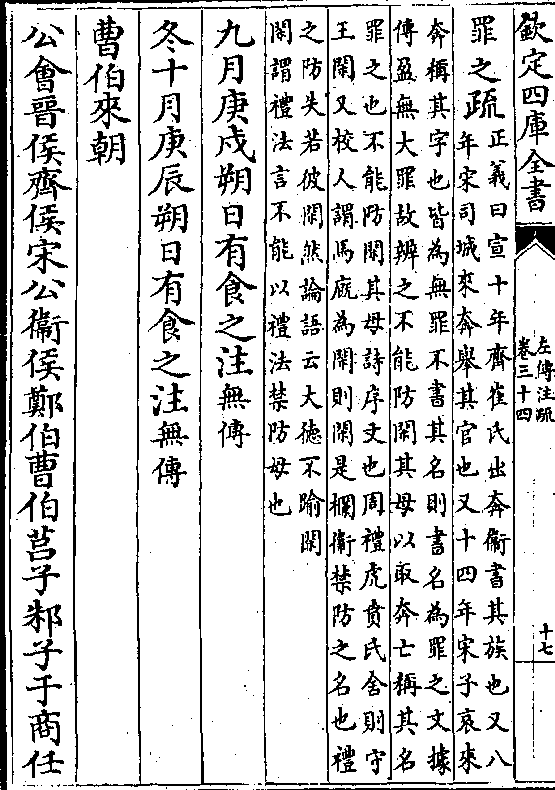 欽定四庫全書
左傳注疏
卷三十四
十七
罪之疏
正義曰宣十年齊崔氏出奔衛書其族也又八
年宋司城來奔舉其官也又十四年宋子哀來
奔稱其字也皆為無罪不書其名則書名為罪之文據
傳盈無大罪故辨之不能防閑其母以取奔亡稱其名
罪之也不能防閑其母詩序文也周禮虎賁氏舍則守
王閑又校人謂馬廐為閑則閑是欄衛禁防之名也禮
之防失若彼閑然論語云大德不踰閑
閑謂禮法言不能以禮法禁防母也
九月庚戌朔日有食之注無傳
冬十月庚辰朔日有食之注無傳
曹伯來朝
公會晉侯齊侯宋公衞侯鄭伯曹伯莒子邾子于商任